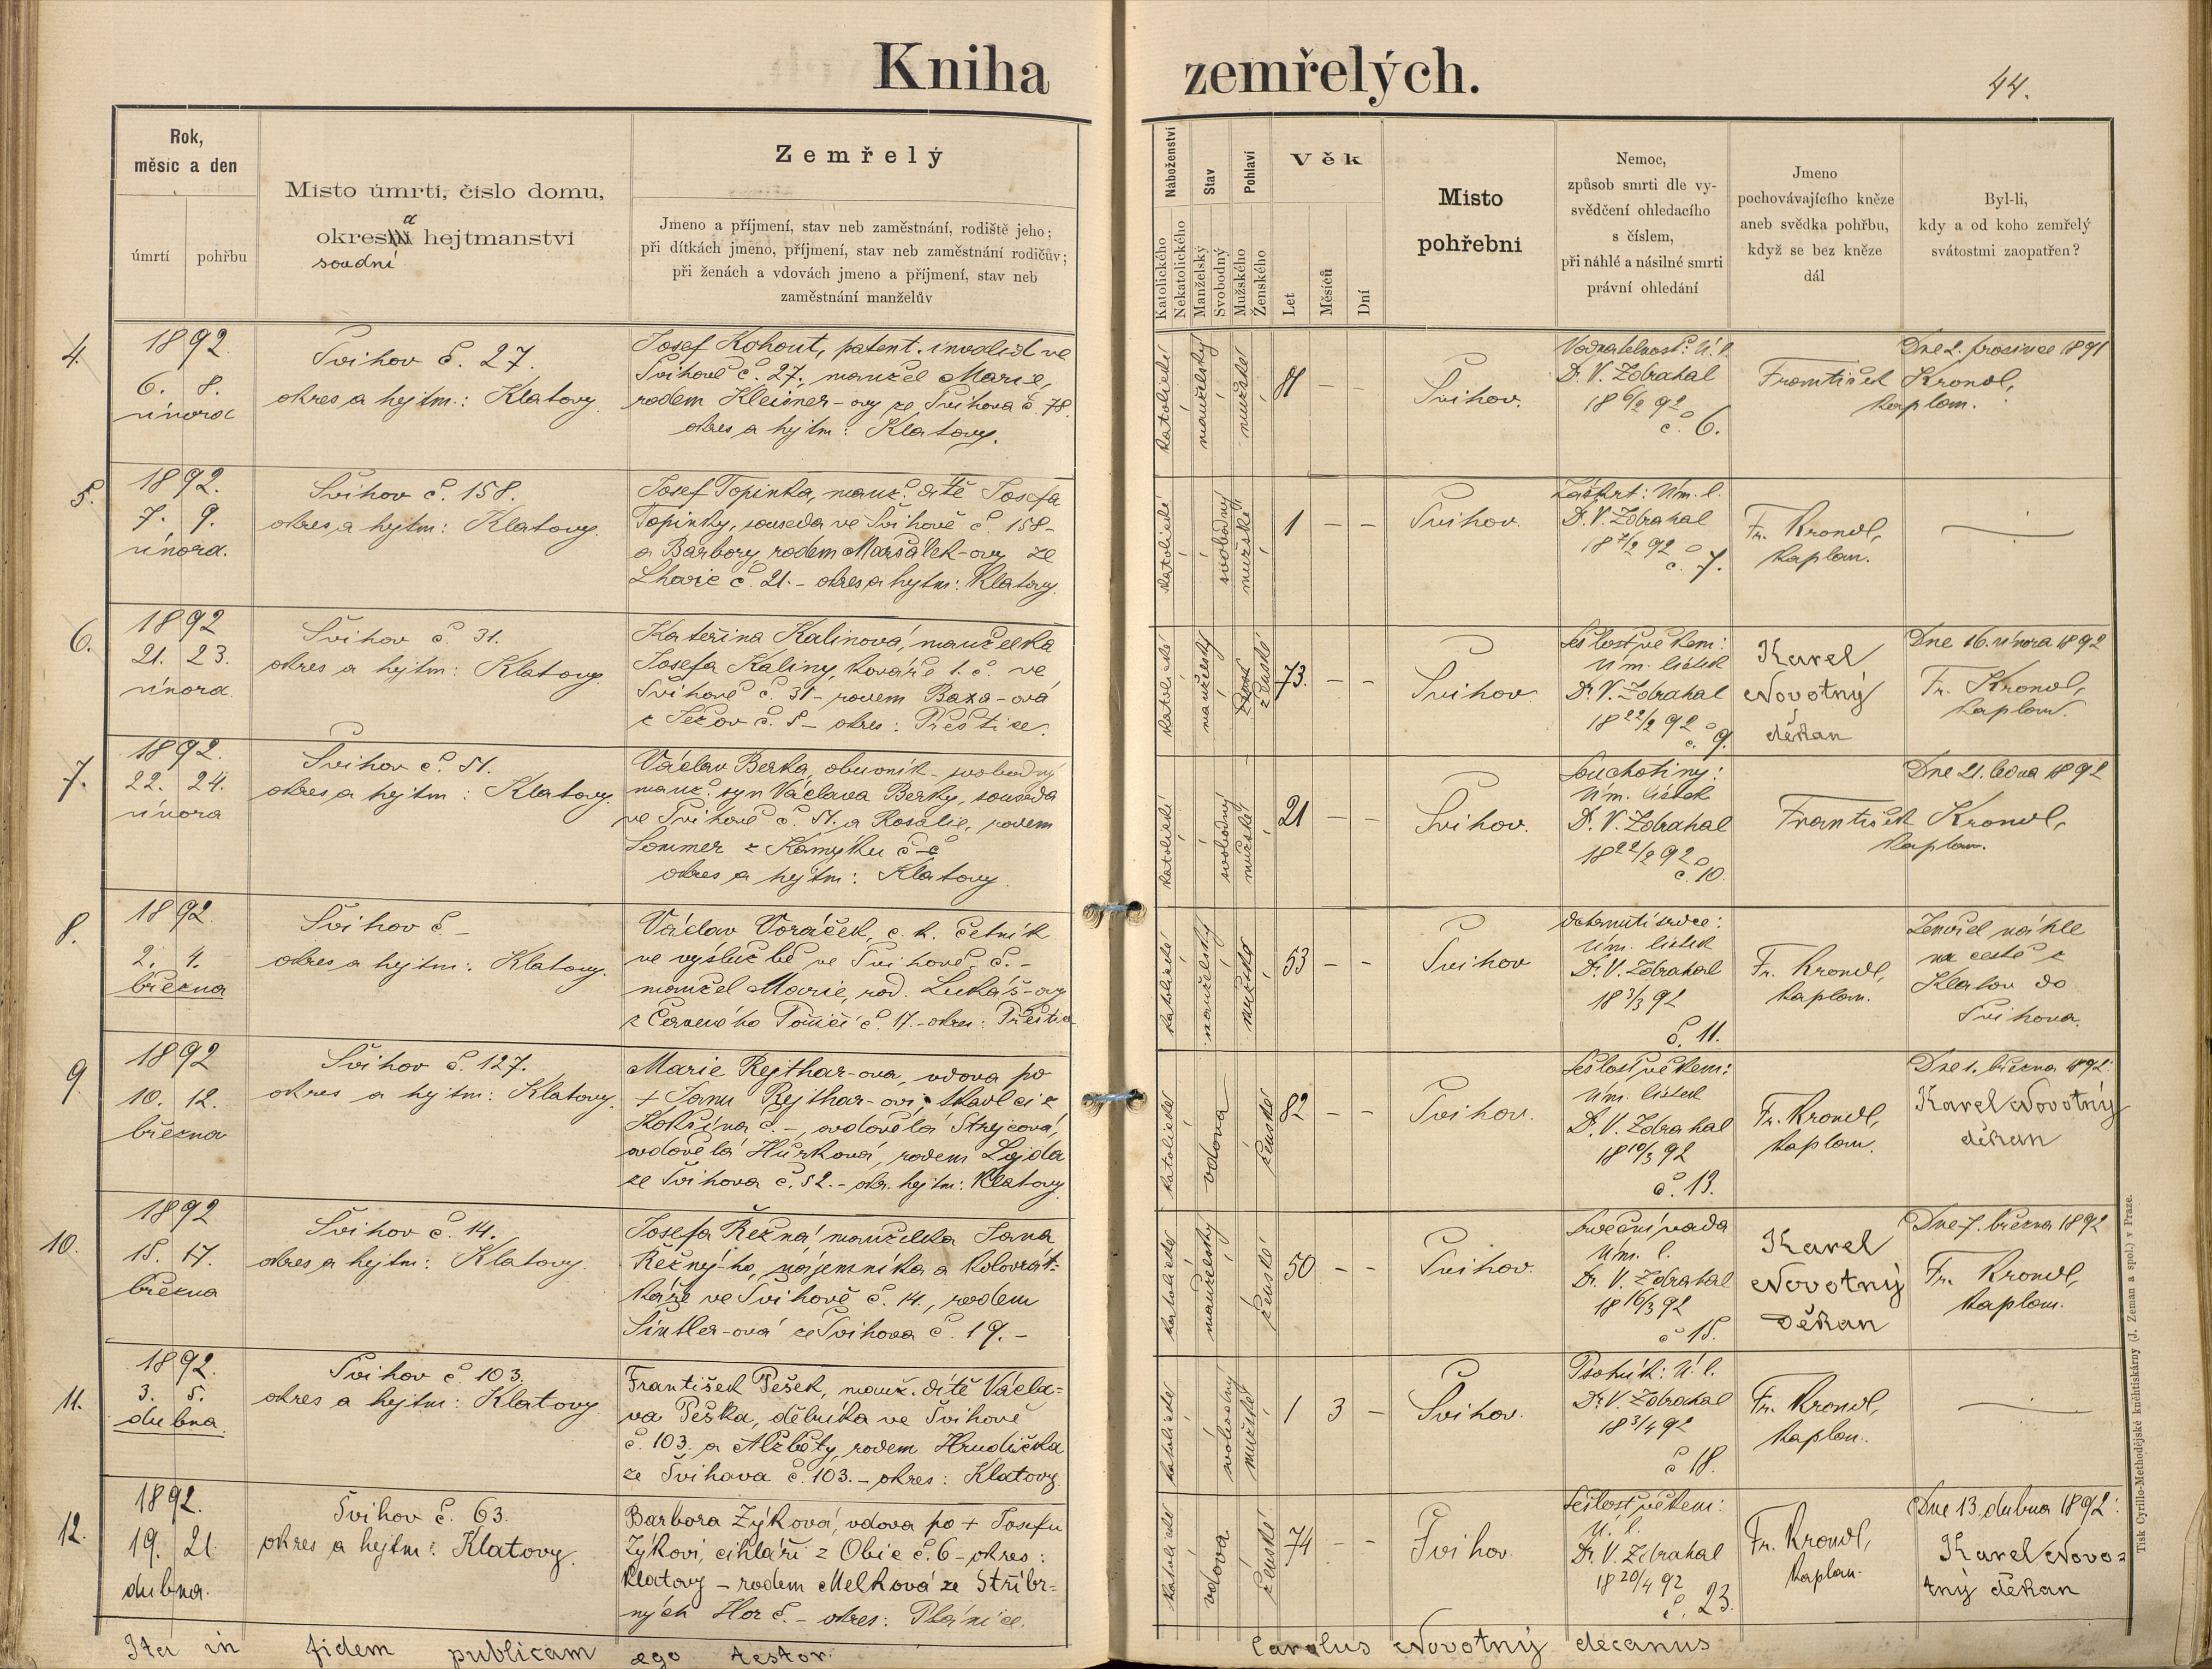 Kniha zemřelých.
44.
Rok,
měsíc a den
úmrtí
pohřbu
Místo úmrtí, číslo domu,
a
okresní hejtmanství
soudní
Zemřelý
Jmeno a příjmení, stav neb zaměstnání, rodiště jeho;
při dítkách jmeno, příjmení, stav neb zaměstnání rodičův;
při ženách a vdovách jmeno a příjmení, stav neb
zaměstnání manželův
Náboženství
Katolického
Nekatolického
Stav
Manželský
Svobodný
Pohlaví
Mužského
Ženského
Věk
Let
Měsíců
Dní
Místo
pohřební
Nemoc,
způsob smrti dle vy-
svědčení ohledacího
s číslem,
při náhlé a násilné smrti
právní ohledání
Jmeno
pochovávajícího kněze
aneb svědka pohřbu,
když se bez kněze
dál
Byl-li,
kdy a od koho zemřelý
svátostmi zaopatřen?
4.
1892.
6. 8.
února
Švihov č. 27.
okres a hejtm.: Klatovy
Josef Kohout, patent. invalid ve
Švihově č. 27., manžel Marie,
rodem Kleisner-ovy ze Švihova č. 78.
okres a hejtm: Klatovy.
katolické
manželský
mužské
81 - -
Švihov.
Ú. l.
Dr. V. Zdrahal
18 6/2 92
č. 6.
František Krondl,
kaplan.
Dne 2. prosince 1891
5.
1892.
7. 9.
února.
Švihov č. 158.
okres a hejtm: Klatovy.
Josef Topinka, manž. dítě Josefa
Topinky, souseda ve Švihově č. 158-
a Barbory, rodem Maršálek-ovy ze
Lhovic č. 21. - okres a hejtm: Klatovy.
katolické
svobodný
mužské
1 - -
Švihov.
Záškrt: Úm. l.
Dr. V. Zdrahal
18 7/2 92
č. 7.
Fr. Krondl,
kaplan.
6.
1892
21. 23.
února.
Švihov č. 31.
okres a hejtm: Klatovy.
Kateřina Kalinová, manželka
Josefa Kaliny, kováře t. č. ve
Švihově č. 31 - rodem Baxa-ová
č. 5 - okres: Přeštice.
katolické
manželský
ženské
73. - -
Švihov
Sešlost věkem:
Úm. lístek
Dr. V. Zdrahal
18 22/2 92
č. 9.
Karel
Novotný
děkan
Dne 16. února 1892
Fr. Krondl,
kaplan.
7.
1892.
22. 24.
února
Švihov č. 51.
okres a hejtm: Klatovy.
Václav Berka, obuvník - svobodný
manž. syn Václava Berky, souseda
ve Švihově č. 51. a Rosalie, rodem
Sommer z Kamýku č -
okres a hejtm: Klatovy.
katolické
svobodný
mužské
21 - -
Švihov.
Souchotiny:
Úm. lístek
Dr. V. Zdrahal
18 22/2 92
č. 10.
František Krondl,
kaplan.
Dne 21. ledna 1892
8.
1892.
2. 4.
března
Švihov č. -
okres a hejtm: Klatovy.
Václav Voráček, c. k. četník
ve výslužbě ve Švihově č. -
manžel Marie, rod. Lukáš-ovy
z Červeného Poříčí č. 17. - okres: Přeštice
katolické
manželský
mužské
53 - -
Švihov
Ochrnutí srdce:
Úm. lístek
Dr. V. Zdrahal
18 3/3 92
č. 11.
Fr. Krondl,
kaplan.
Zemřel náhle
na cestě z
Klatov do
Švihova.
9.
1892
10. 12.
března
Švihov č. 127.
okres a hejtm: Klatovy.
Marie Rejthar-ova, vdova po
+ Janu Rejthar-ovi, tkadlci z
Kokšína č. -, ovdovělá Strejcová,
ovdovělá Hůrková, rodem Lajda
ze Švihova č. 52. - okr. hejtm: Klatovy
katolické
vdova
ženské
82 - -
Švihov.
Sešlost věkem:
Úm. lístek
Dr. V. Zdrahal
18 10/3 92
č. 13.
Fr. Krondl,
kaplan.
Dne 1. března 1892:
Karel Novotný
děkan
10.
1892
15. 17.
března
Švihov č. 14.
okres a hejtm: Klatovy.
Josefa Řežná, manželka Jana
Řežný-ho, nájemníka a kolovrát-
káře ve Švihově č. 14., rodem
Šintler-ová ze Švihova č. 19. -
katolické
manželský
ženské
50 - -
Švihov.
Srdeční vada
Úm. l.
Dr. V. Zdrahal
18 16/3 92
č 15.
Karel
Novotný
děkan
Dne 7. března 1892
Fr. Krondl,
kaplan.
11.
1892.
3. 5.
dubna.
Švihov č. 103.
okres a hejtm: Klatovy
František Pešek, manž. dítě Václa-
va Peška, dělníka ve Švihově
č. 103. a Alžběty, rodem Hrudička
ze Švihova č. 103. - okres: Klatovy.
katolické
svobodný
mužské
1 3 -
Švihov.
Psotník: Ú. l.
Dr. V. Zdrahal
18 3/4 92
č 18.
Fr. Krondl,
kaplan.
12.
1892.
19. 21
dubna.
Švihov č. 63.
okres a hejtm: Klatovy.
Barbora Zýková, vdova po + Josefu
Zýkovi, cihláři z Obic č. 6 - okres:
Klatovy - rodem Melková ze Stříbr-
ných Hor č. - okres: Plánice.
katolické
vdova
ženské
74 - -
Švihov
Sešlost věkem:
Ú. l.
Dr. V. Zdrahal
18 20/4 92
č. 23.
Fr. Krondl,
kaplan.
Dne 13. dubna 1892:
Karel Novo-
tný děkan
Ita in fidem publicam ego testor. Carolus Novotný decanus
Tisk Cyrillo-Methodějské knihtiskárny (J. Zeman a spol.) v Praze.